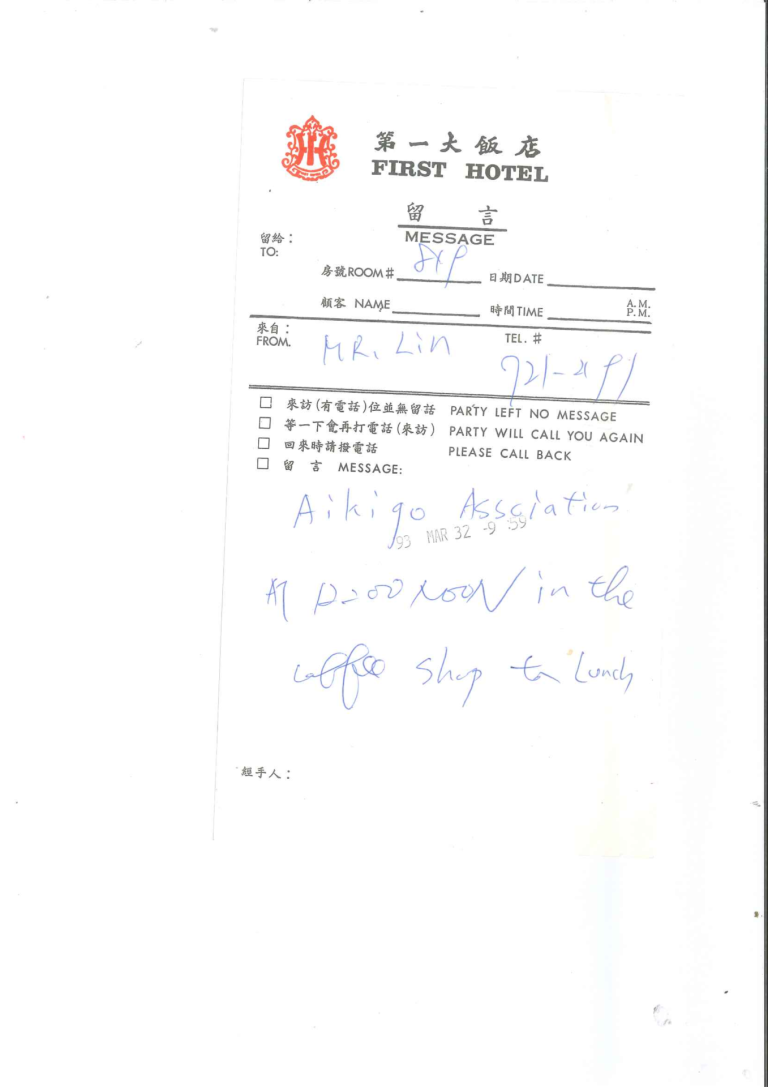 第一大飯店
FIRST HOTEL
留言
MESSAGE
留給：
TO:
房號ROOM# 日期DATE
顧客 NAME 時間TIME A.M.
P.M.
來自：
FROM. MR. Lin TEL. #
721-
□ 來訪(有電話)位並無留話 PARTY LEFT NO MESSAGE
□ 等一下會再打電話(來訪) PARTY WILL CALL YOU AGAIN
□ 回來時請撥電話 PLEASE CALL BACK
□ 留言 MESSAGE:
Aikigo Assciation
93 MAR 32 -9 :59
AT 12:00 NOON in the
coffee shop Lunch
經手人：